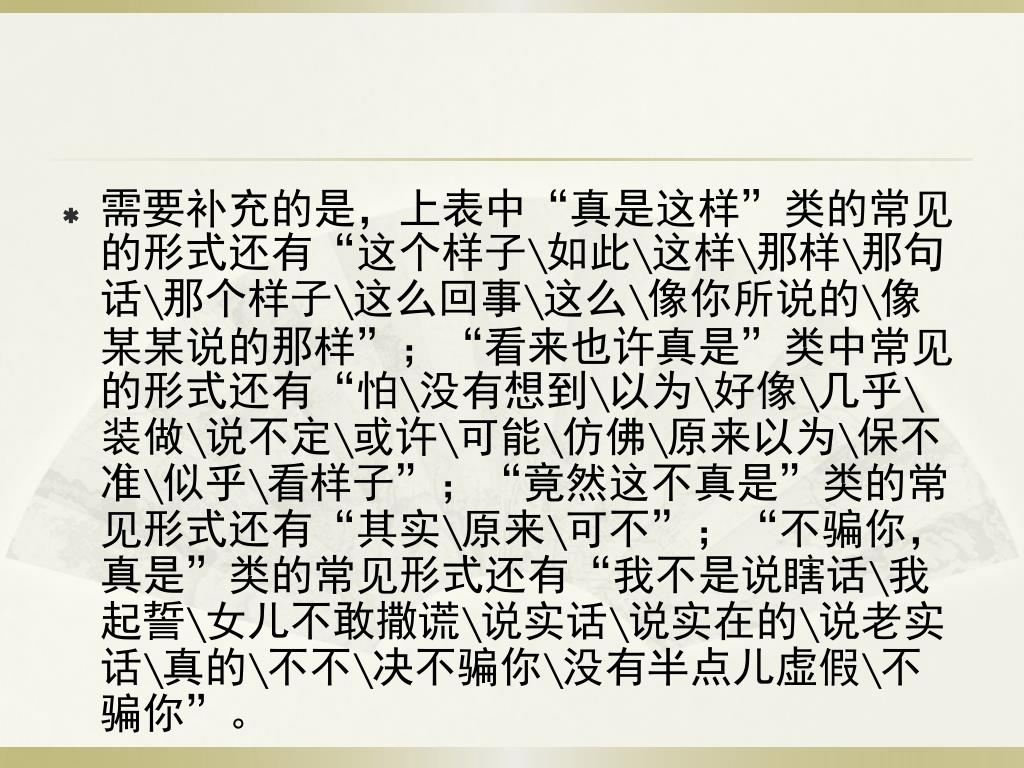 需要补充的是，上表中“真是这样”类的常见
的形式还有“这个样子\如此\这样\那样\那句
话\那个样子\这么回事\这么\像你所说的\像
某某说的那样”；“看来也许真是”类中常见
的形式还有“怕\没有想到\以为\好像\几乎\
装做\说不定\或许\可能\仿佛\原来以为\保不
准\似乎\看样子”；“竟然这不真是”类的常
见形式还有“其实\原来\可不”；“不骗你，
真是”类的常见形式还有“我不是说瞎话\我
起誓\女儿不敢撒谎\说实话\说实在的\说老实
话\真的\不不\决不骗你\没有半点儿虚假\不
骗你”。